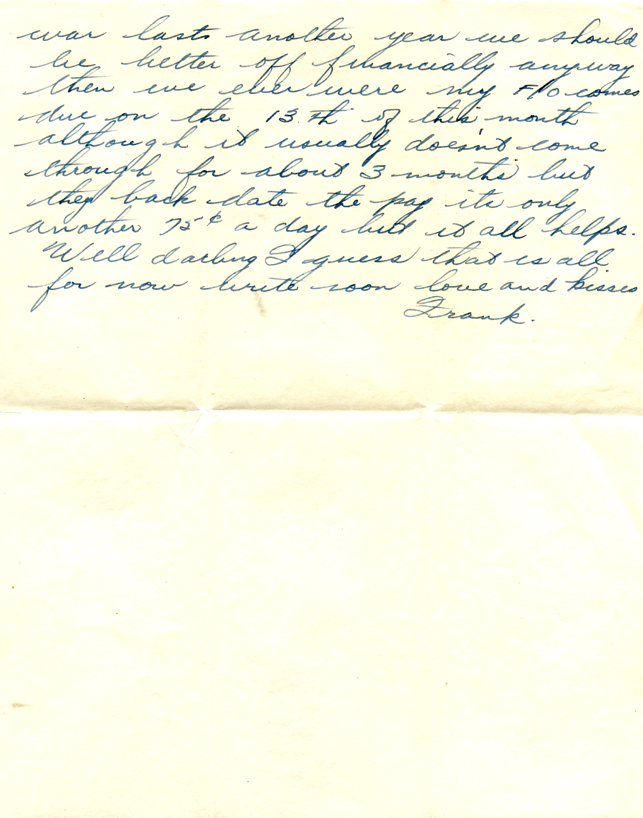 war lasts another year we should
be better off financially anyway
then we ever were my F/O comes
due on the 13.th of this month
although it usually doesn't come
through for about 3 months but
they back date the pay its only
another 75¢ a day but it all helps.
Well darling I guess that is all
for now write soon love and kisses
Frank.